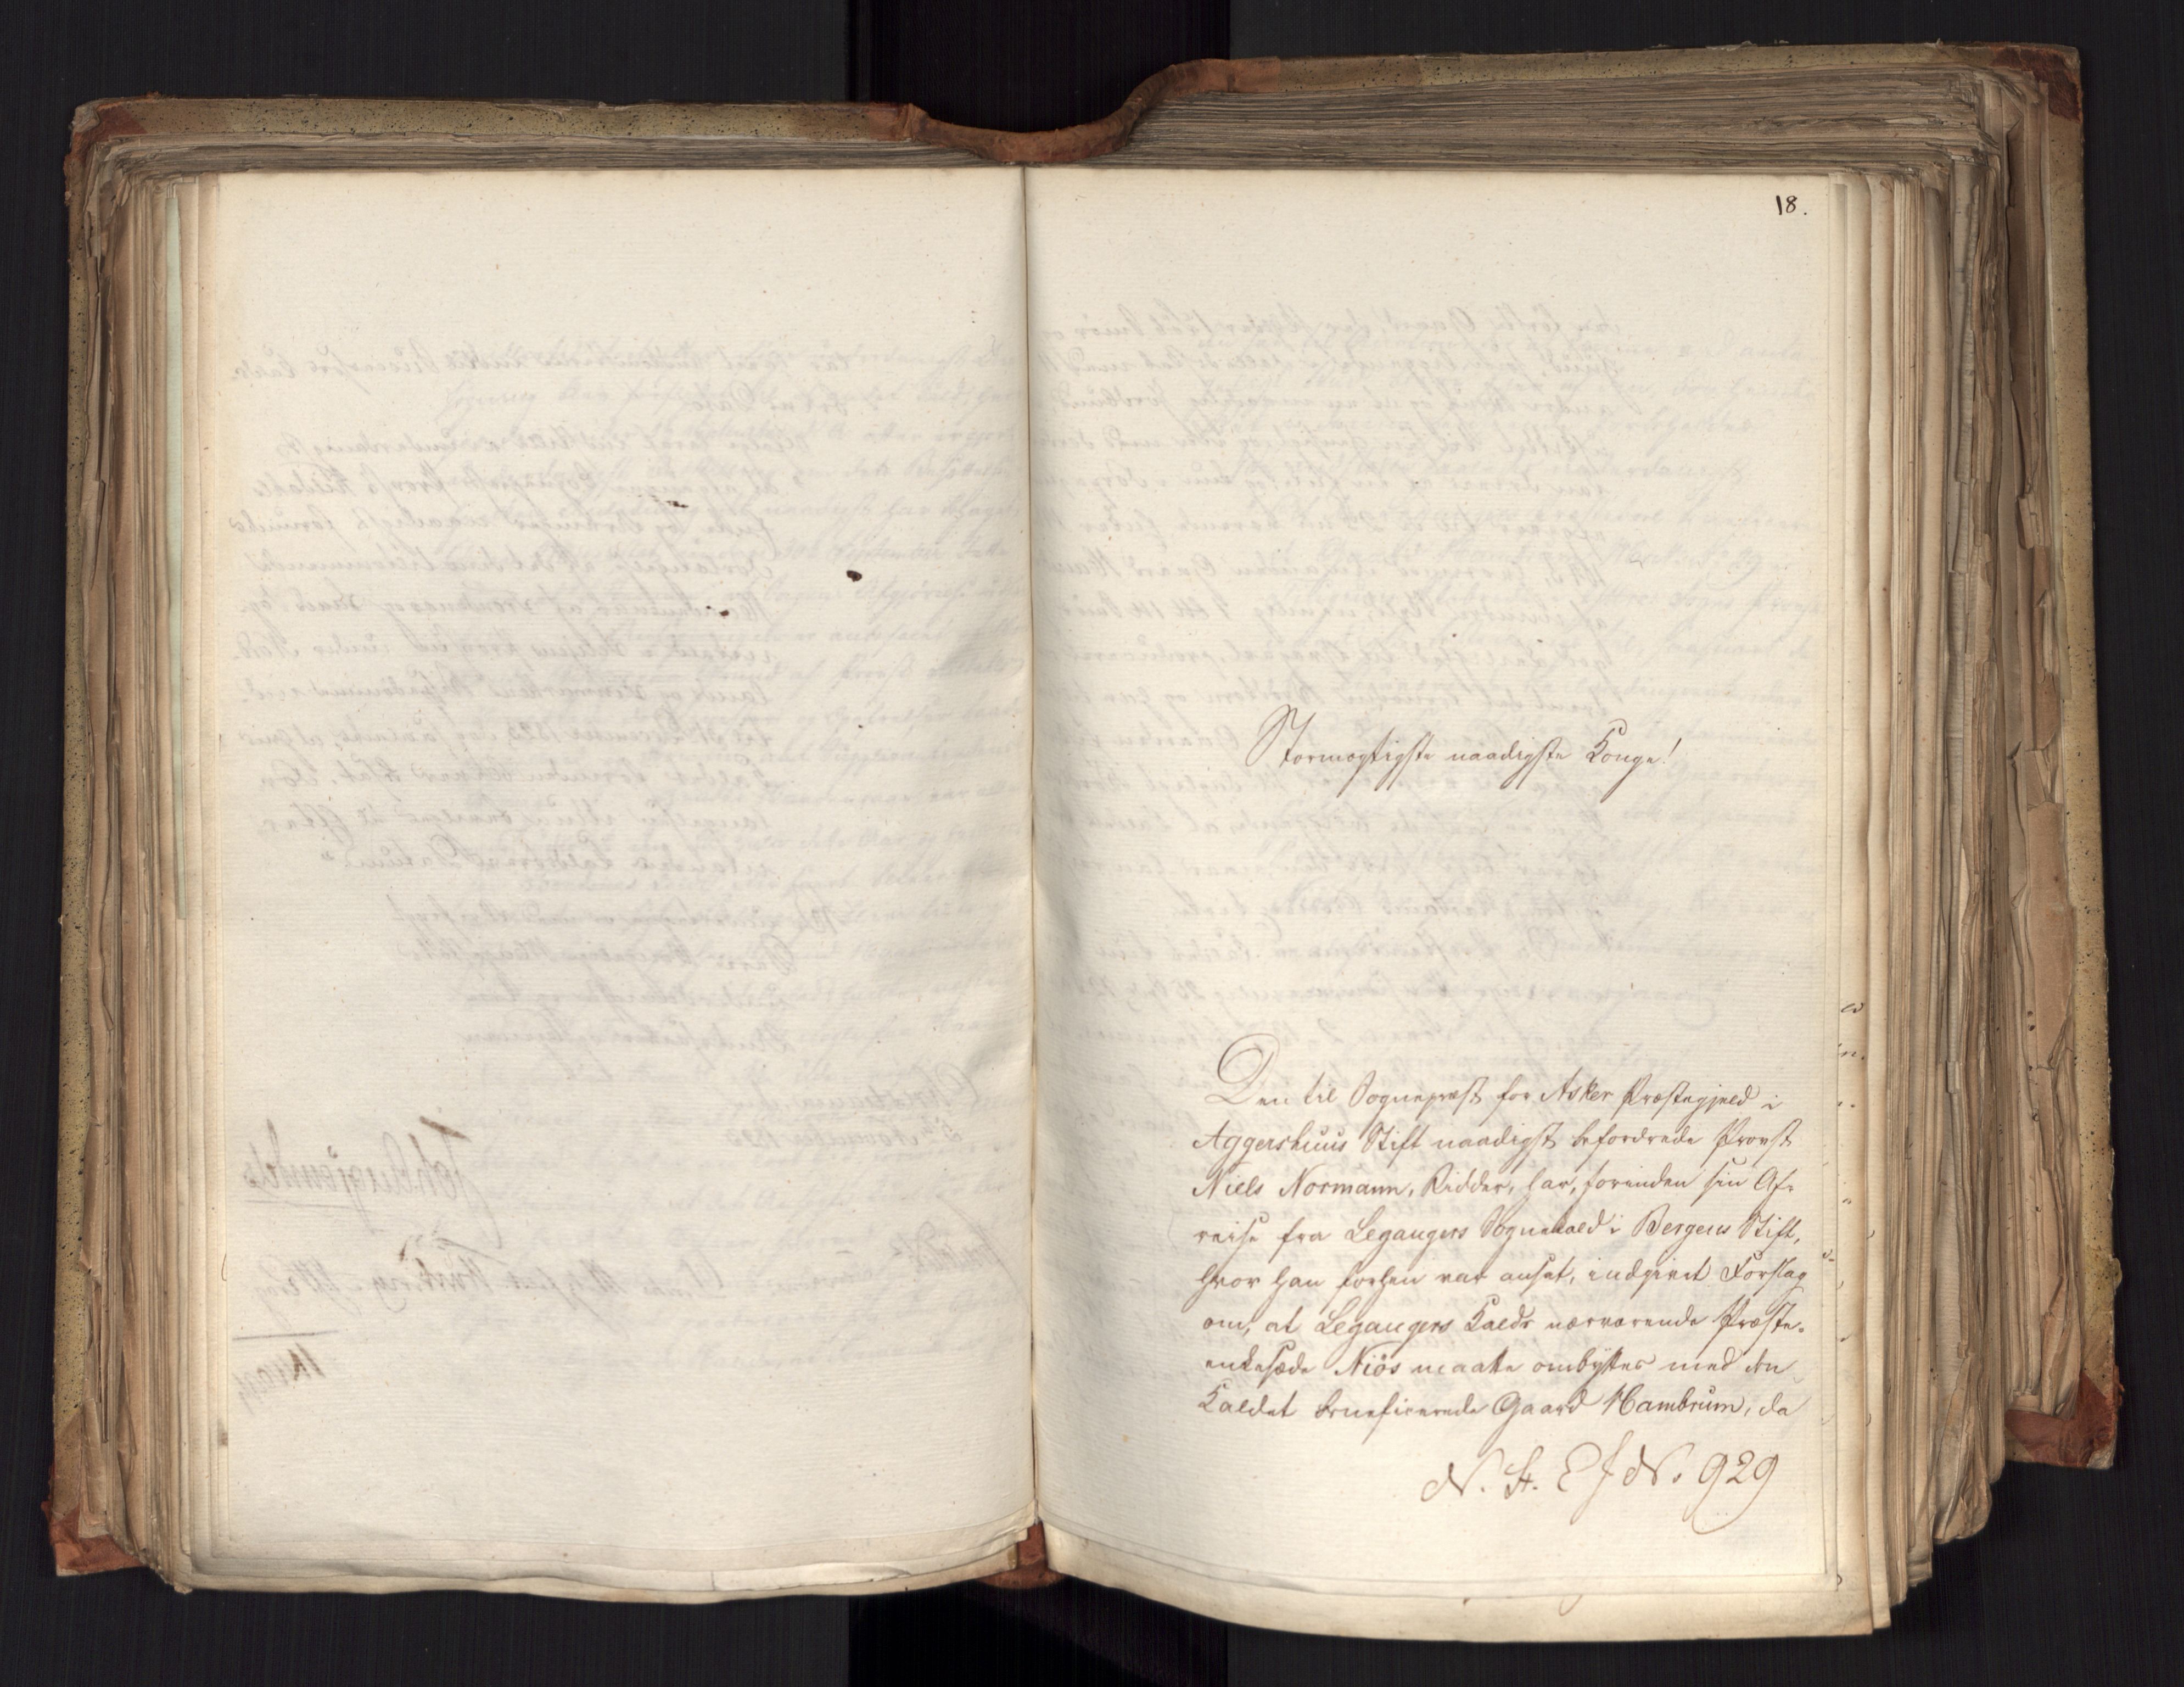 18.
Stormægtigste naadigste Konge!
Den til Sognepræst for Asker Præstegjeld i
Aggershuus Stift naadigst befordrede Provst
Niels Normann, Ridder, har, forinden sin Af-
reise fra Legangers Sognekald i Bergens Stift,
hvor han forhen var ansat, indgivet Forslag
om, at Legangers Kalds nærværende Præste-
enkesæde Niøs maatte ombyttes med den
Kaldet beneficerede Gaard Hambrum, da
N. St. E J No. 929